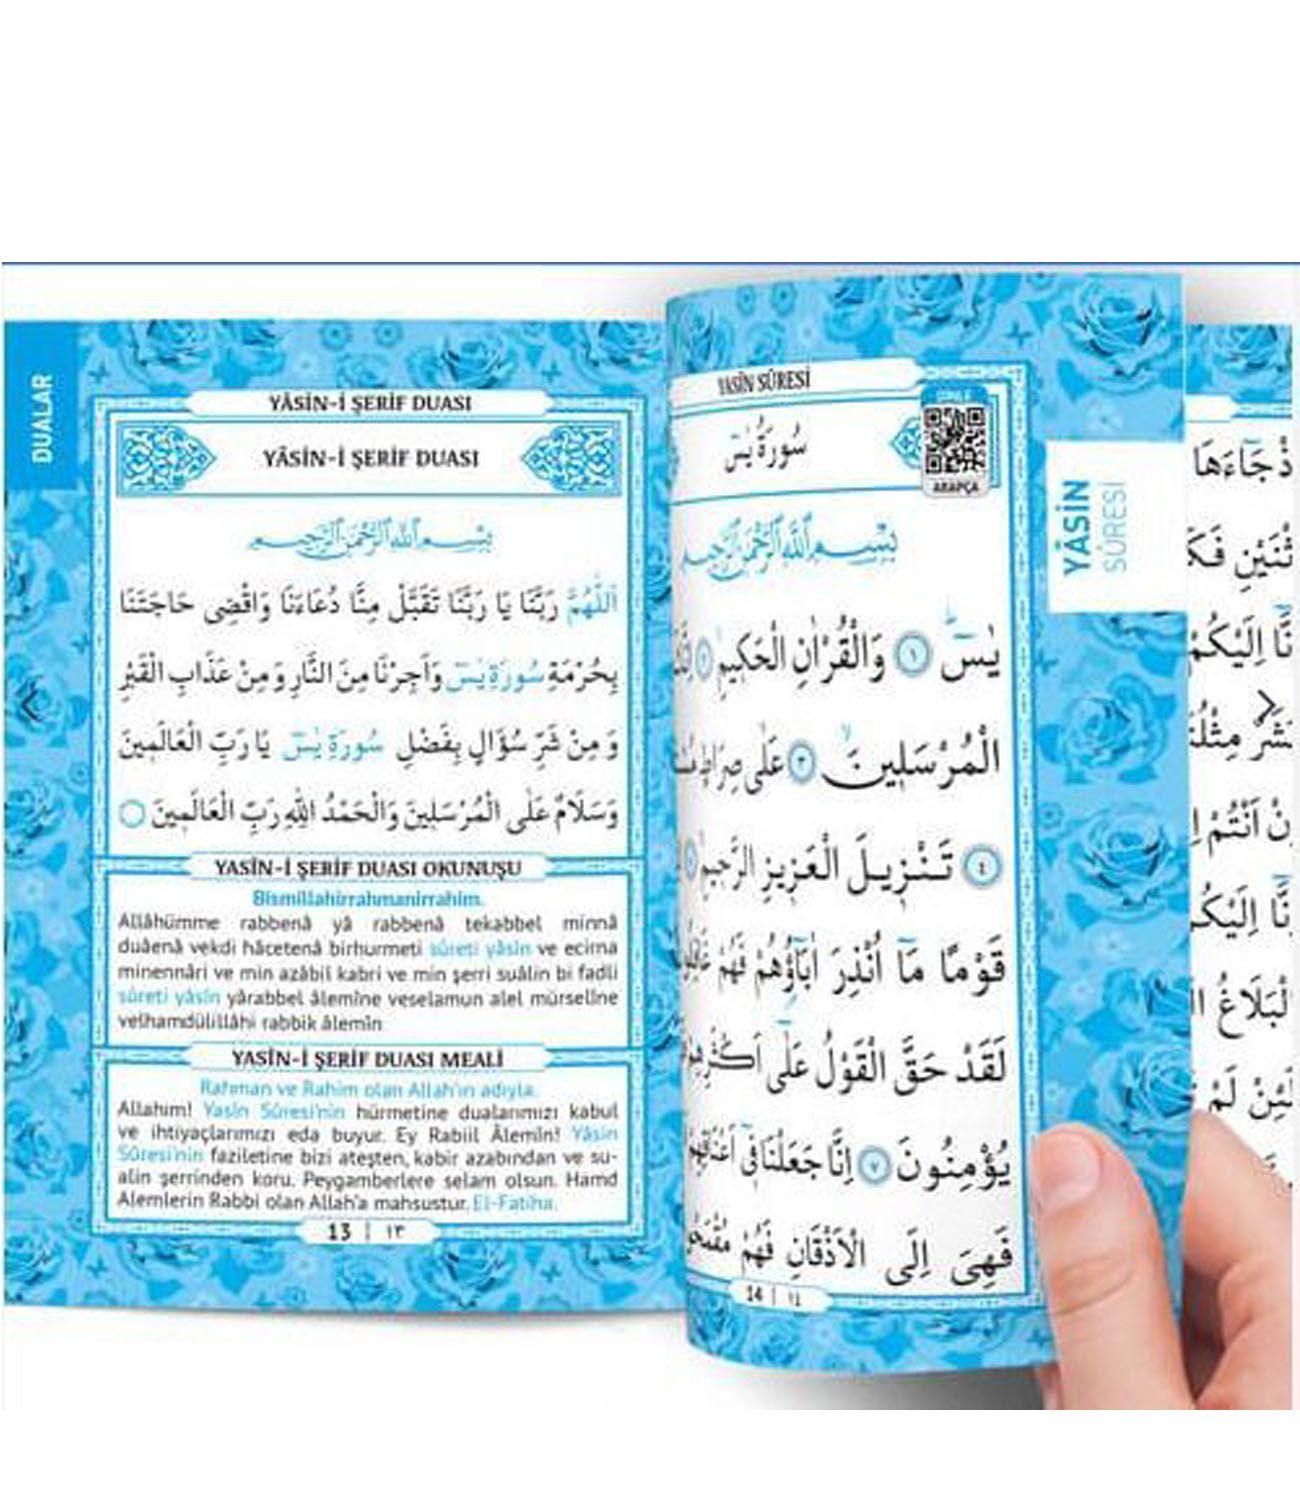 DUALAR
YÂSİN-İ ŞERİF DUASI
YÂSİN-İ ŞERİF DUASI
بِسْمِ اللّٰهِ الرَّحْمٰنِ الرَّحِيمِ
اَللّٰهُمَّ رَبَّنَا يَا رَبَّنَا تَقَبَّلْ مِنَّا دُعَاءَنَا وَاقْضِى حَاجَتَنَا
بِحُرْمَةِ سُورَةِ يٰسٓ وَاَجِرْنَا مِنَ النَّارِ وَمِنْ عَذَابِ الْقَبْرِ
وَمِنْ شَرِّ سُؤَالٍ بِفَضْلِ سُورَةِ يٰسٓ يَا رَبَّ الْعَالَمِينَ
وَسَلَامٌ عَلَى الْمُرْسَلِينَ وَالْحَمْدُ اللّٰهِ رَبِّ الْعَالَمِينَ
YASİN-İ ŞERİF DUASI OKUNUŞU
Bismillahirrahmanirrahim.
Allâhümme rabbenâ yâ rabbenâ tekabbel minnâ
duâenâ vekdi hâcetenâ birhurmeti sûreti yâsin ve ecirna
minennâri ve min azâbil kabri ve min şerri suâlin bi fadli
sûreti yâsin yârabbel âlemîne veselamun alel mürselîne
velhamdülillâhi rabbik âlemîn
YASİN-İ ŞERİF DUASI MEALİ
Rahman ve Rahim olan Allah'ın adıyla.
Allahım! Yasin Sûresi'nin hürmetine dualarımızı kabul
ve ihtiyaçlarımızı eda buyur. Ey Rabiil Âlemin! Yâsin
Sûresi'nin faziletine bizi ateşten, kabir azabından ve su-
alin şerrinden koru. Peygamberlere selam olsun. Hamd
Alemlerin Rabbi olan Allah'a mahsustur. El-Fatiha.
13 | ١٣
YASİN SÛRESİ
سُورَةُ يٰسٓ
DİNLE
ARAPÇA
بِسْمِ اللّٰهِ الرَّحْمٰنِ الرَّحِيمِ
يٰسٓ ١ وَالْقُرْاٰنِ الْحَكِيمِ ٢
الْمُرْسَلِينَ ٣ عَلٰى صِرَاطٍ
٤ تَنْزِيلَ الْعَزِيزِ الرَّحِيمِ
قَوْمًا مَٓا اُنْذِرَ اٰبَٓاؤُهُمْ فَهُمْ
لَقَدْ حَقَّ الْقَوْلُ عَلٰٓى اَكْثَرِهِمْ
يُؤْمِنُونَ ٧ اِنَّا جَعَلْنَا فٖٓى اَعْنَاقِهِمْ
فَهِىَ اِلَى الْاَذْقَانِ فَهُمْ
14 | ١٤
YÂSİN
SÛRESİ
جَٓاءَهَا
اِلَيْكُمْ
اَنْتُمْ
لَمْ